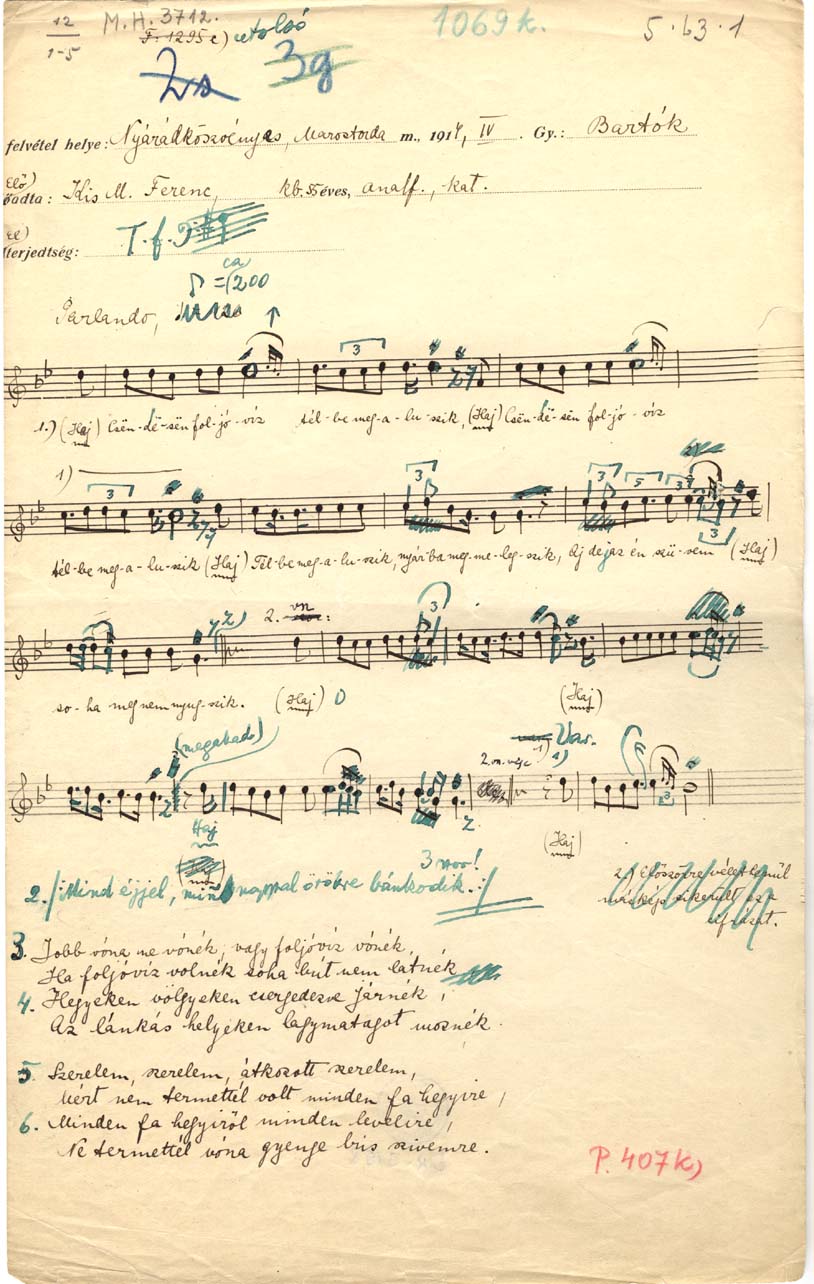 12
1-5
M.H. 3712.
F. 1295 c) utolsó
1069 k.
5·63·1
Zs 3g
felvétel helye: Nyárádkőszvényes, Marostorda m., 1914, IV. Gy.: Bartók
Elő)
adta: Kis M. Ferenc, kb. 55 éves, analf., kat.
El)
terjedtség: T.f.
ca
=(200
Parlando,
3
1.) (Haj) Csën-dë-sën fol-jó-víz tél-be meg-a-lu-szik, (Haj) Csën-dë-sën fol-jó-víz
1) 3 3 3 5 3 2) 3
tél-be meg-a-lu-szik (Haj) Tél-be meg-a-lu-szik, nyár-ba meg-me-leg-szik, Aj de jaz én szü-sem (Haj)
2) 2. vn: 3
so-ha meg nem nyug-szik. (Haj) (Haj)
(megakadt) 2. vn. vége 1) Var. 1)
Haj (Haj)
3
2. /: Mind éjjel, mind nappal örökre bánkodik. :/
2) Először véletlenül
másképp sikerült ez a
cifrázat.
3. Jobb vóna ne vónék, vagy foljóvíz vónék,
Ha foljóvíz volnék soha bút nem látnék
4. Hegyeken völgyeken csergedezve járnék,
Az lánkás helyeken lagymatagot mosnék.
5. Szerelem, szerelem, átkozott szerelem,
Mért nem termettél volt minden fa hegyire,
6. Minden fa hegyiről minden levelire,
Ne termettél vóna gyenge bús szivemre.
P. 407 k)